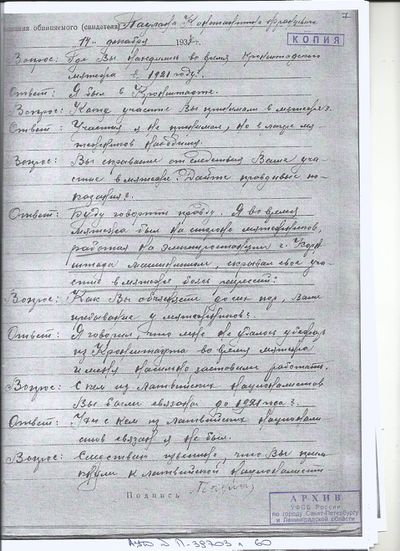 7
КОПИЯ
обвиняемого (свидетеля) Паулана Константина
14 декабря 193
Вопрос: Где Вы находились во время Кронштадского
мятежа в 1921 году?
Ответ: Я был в Кронштадте.
Вопрос: Какое участие Вы принимали в мятеже?
Ответ: Участия я не принимал, но в лагере мя
тежников находился.
Вопрос: Вы скрываете от следствия Ваше уча-
стие в мятеже? Дайте правдивые по-
казания.
Ответ: Буду говорить правду. Я во время
мятежа был на стороне мятежников,
работая на электростанции г. Крон
штада машинистом, скрывал свое уча-
стие в мятеже боясь репрессий.
Вопрос: Как Вы объясняете до сих пор, Ваше
пребывание у мятежников?
Ответ: Я говорил что мне не удалось убежать
из Кронштадта во время мятежа
и меня насильно заставили работать.
Вопрос: С кем из латвийских националистов
Вы были связаны до 1921 года?
Ответ: Ни с кем из латвийских национали
стов связан я не был.
Вопрос: Следствию известно, что Вы прим
кнули к латвийской националисти
Подпись
АРХИВ
УФСБ России
по городу Санкт-Петербургу
и Ленинградской области
П-39703 л 60